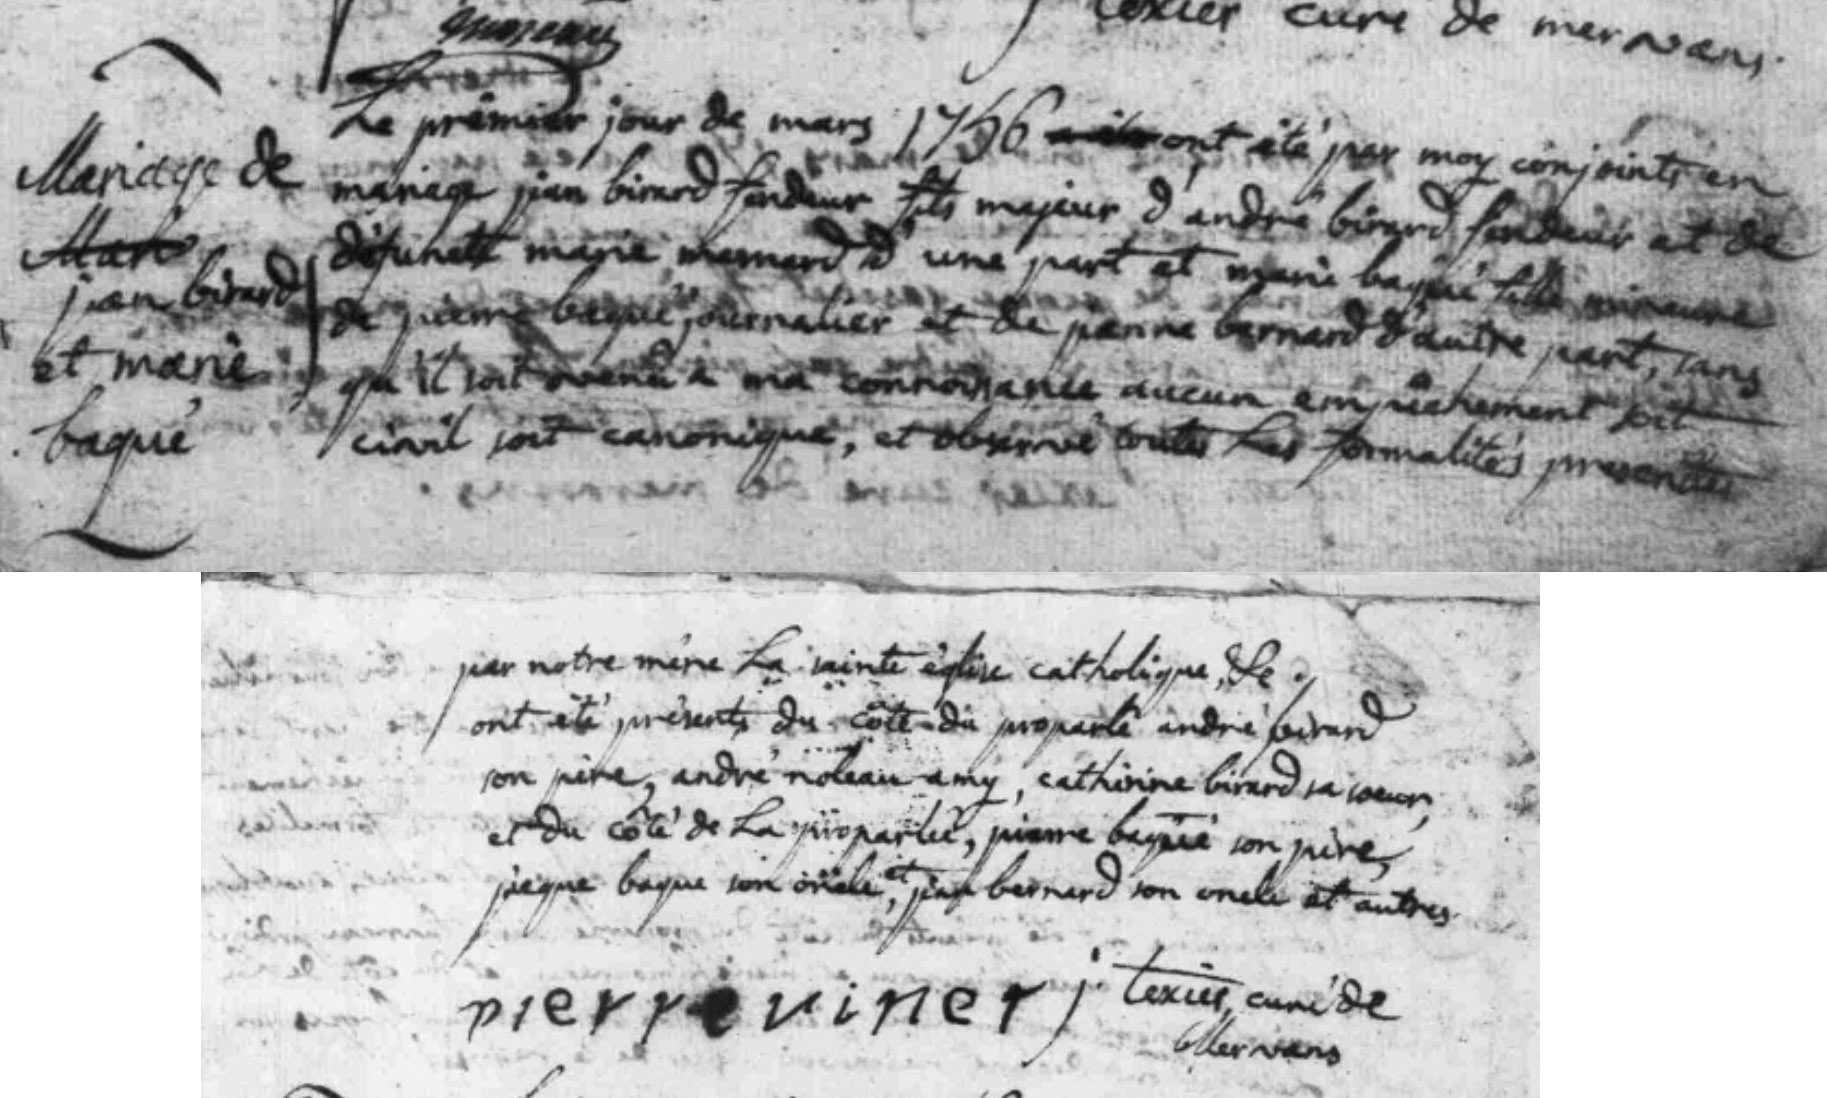 texier curé de mervans
Mariage de
jean birard
et marie
baqué
Le premier jour de mars 1756 ont été par moy conjoints en
mariage jean birard fendeur fils majeur d'andré birard fendeur et de
défunete marie menard d'une part et marie baqué fille mineure
de pierre baqué journalier et de jeanne bernard d'autre part, sans
qu'il soit venu à ma connoissance aucun empêchement soit
civil soit canonique, et observé toutes Les formalités prescrites
par notre mére La sainte église catholique, Le
ont été présents du côté du proparlé andré birard
son pére, andré noleau amy, cathérine birard sa soeur,
et du côté de La proparlée, pierre baqué son pére,
jacque baque son oncle, et jean bernard son oncle et autres
pierre viner j texier, curé de
Mervans